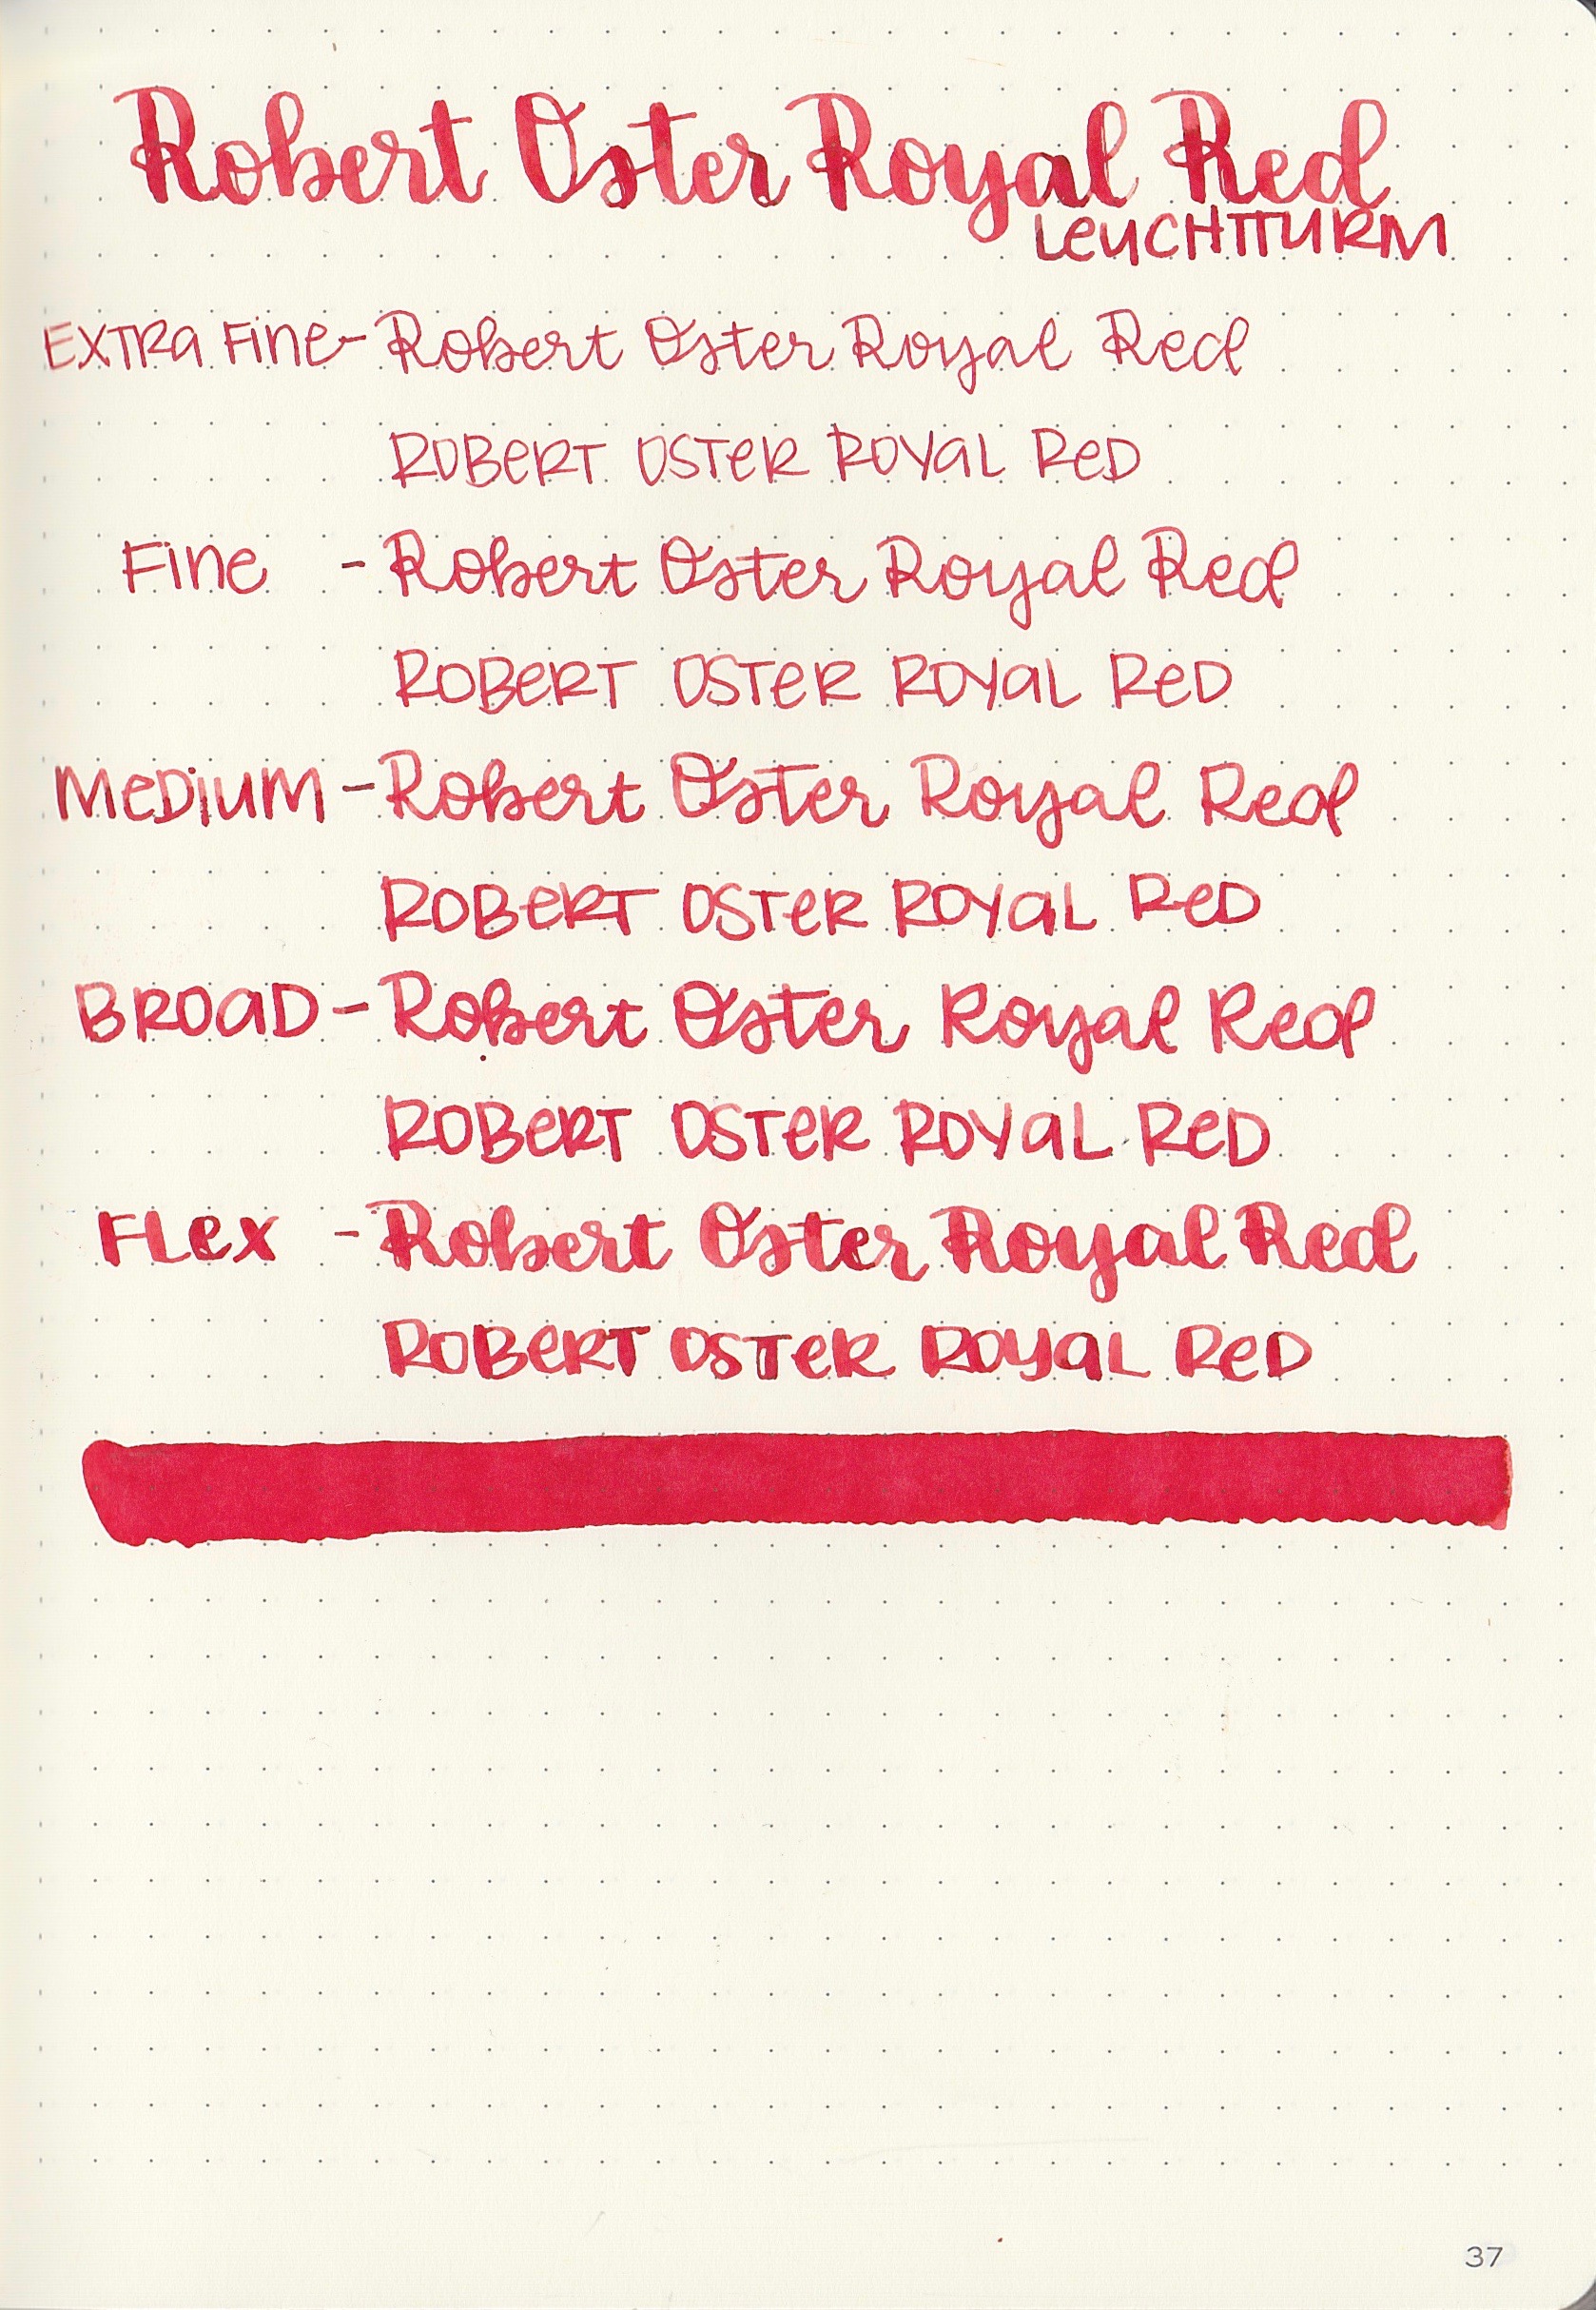 Robert Oster Royal Red
LEUCHTTURM
EXTRA FINE - Robert Oster Royal Red
ROBERT OSTER ROYAL RED
FINE - Robert Oster Royal Red
ROBERT OSTER ROYAL RED
MEDIUM - Robert Oster Royal Red
ROBERT OSTER ROYAL RED
BROAD - Robert Oster Royal Red
ROBERT OSTER ROYAL RED
FLEX - Robert Oster Royal Red
ROBERT OSTER ROYAL RED
37